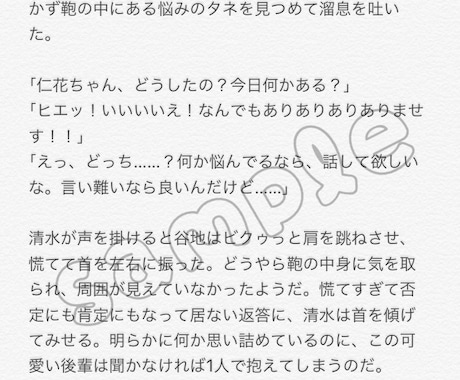 かず鞄の中にある悩みのタネを見つめて溜息を吐い
た。
「仁花ちゃん、どうしたの？今日何かある？」
「ヒエッ！いいいいえ！なんでもありありありありませ
す！！」
「えっ、どっち……？何か悩んでるなら、話して欲しい
な。言い難いなら良いんだけど……」
清水が声を掛けると谷地はビクゥっと肩を跳ねさせ、
慌てて首を左右に振った。どうやら鞄の中身に気を取
られ、周囲が見えていなかったようだ。慌てすぎて否
定にも肯定にもなって居ない返答に、清水は首を傾げ
てみせる。明らかに何か思い詰めているのに、この可
愛い後輩は聞かなければ1人で抱えてしまうのだ。
sample